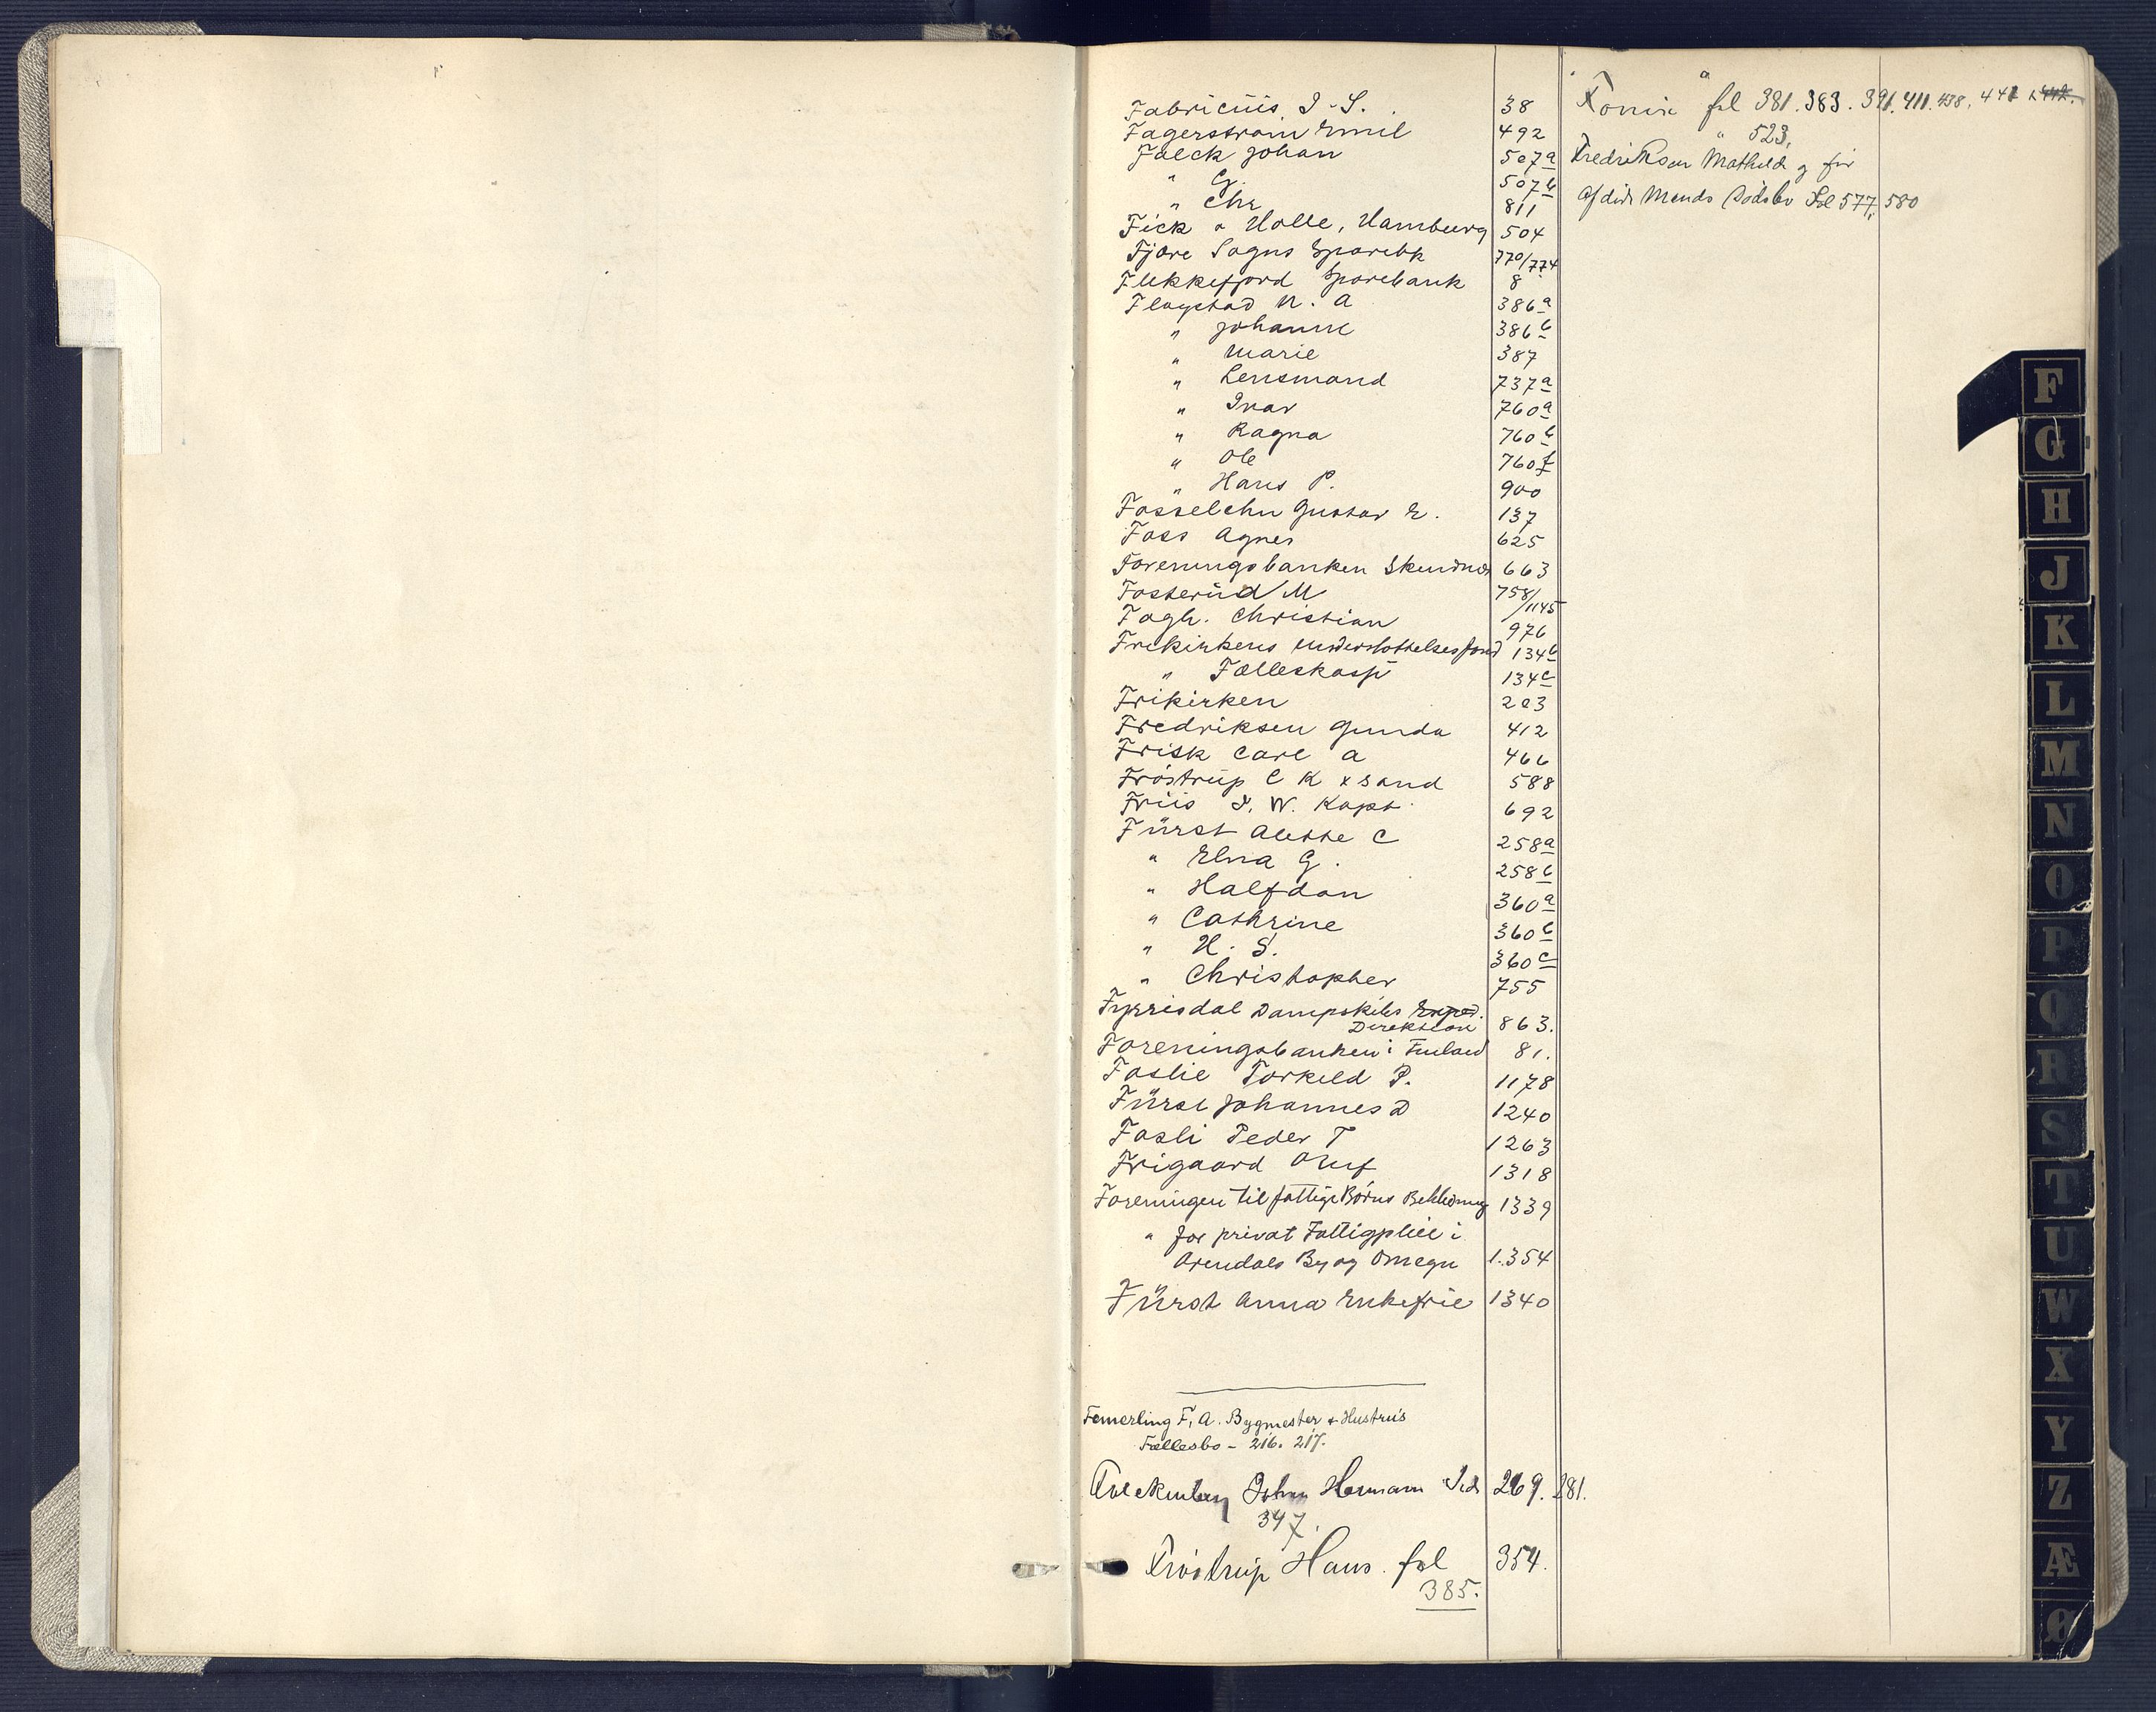 Fabricius, J. S. 38
Fagerstrøm Emil 492
Falck Johan 507a
" G. 507b
" Chr 811
Fick & Holle, Hamburg 504
Fjære Sogns Sparebk 770/774
Flekkefjord Sparebank 8
Flagstad N. A 386a
" Johanne 386b
" Marie 387
" Lensmand 737a
" Ivar 760a
" Ragna 760b
" Ole 760f
" Hans P. 900
Fosselchn Gustav E. 137
Foss Agnes 625
Foreningsbanken 663
Fosterud M 758/1145
Fogh. Christian 976
Frikirkens understøttelsesfond 134b
" Fælleskasse 134c
Frikirken 203
Fredriksen Gunda 412
Frisk Carl A 466
Frøstrup C K x sand 588
Friis J. W. Kapt. 692
Fürst Alethe C 258a
" Elna G. 258b
" Halfdan 360a
" Cathrine 360b
" H. S. 360c
" Christopher 755
Fyrrisdal Dampskibs Exped.
Direktion 863.
Foreningsbanken i Finland 81.
Foslie Torkeld P. 1178
Fürst Johannes D 1240
Fosli Peder T 1263
Frigaard Oluf 1318
Foreningen til fattige Børns Beklædning 1339
" for privat Fattigpleie i
Arendals By og Omegn 1354
Fürst Anna Enkefrue 1340
Femerling F. A. Bygmester & Hustrus
Fællesbo - 216. 217.
John Hermann 269. 281.
347.
Frøstrup Hans. fol 354.
385.
fol 381. 383. 391. 411. 438. 441 & 442.
" 523,
Fredriksen Mathilde g for
afdøde Mands Dødsbo Fol 577, 580
F
G
H
J
K
L
M
N
O
P
Q
R
S
T
U
W
X
Y
Z
Æ
Ø